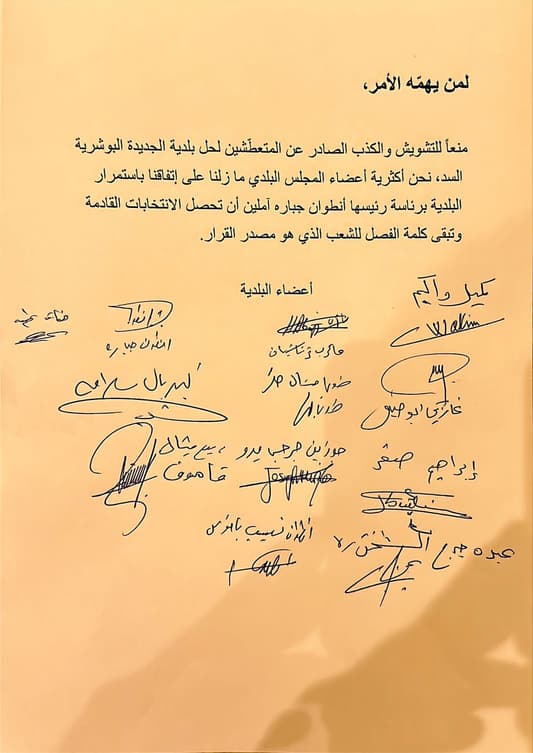 لمن يهمّه الأمر،
منعاً للتشويش والكذب الصادر عن المتعطّشين لحل بلدية الجديدة البوشرية
السد، نحن أكثرية أعضاء المجلس البلدي ما زلنا على إتفقنا باستمرار
البلدية برئاسة رئيسها أنطوان جباره آملين أن تحصل الانتخابات القادمة
وتبقى كلمة الفصل للشعب الذي هو مصدر القرار.
أعضاء البلدية
ميشال واكيم
انطوان جباره
غازي ابو
كبريال سلامه
ابراهيم صقر
جوزاين جرجي
ربيع ميشال
قاهوف
انطوان نسيب
عبده جبر